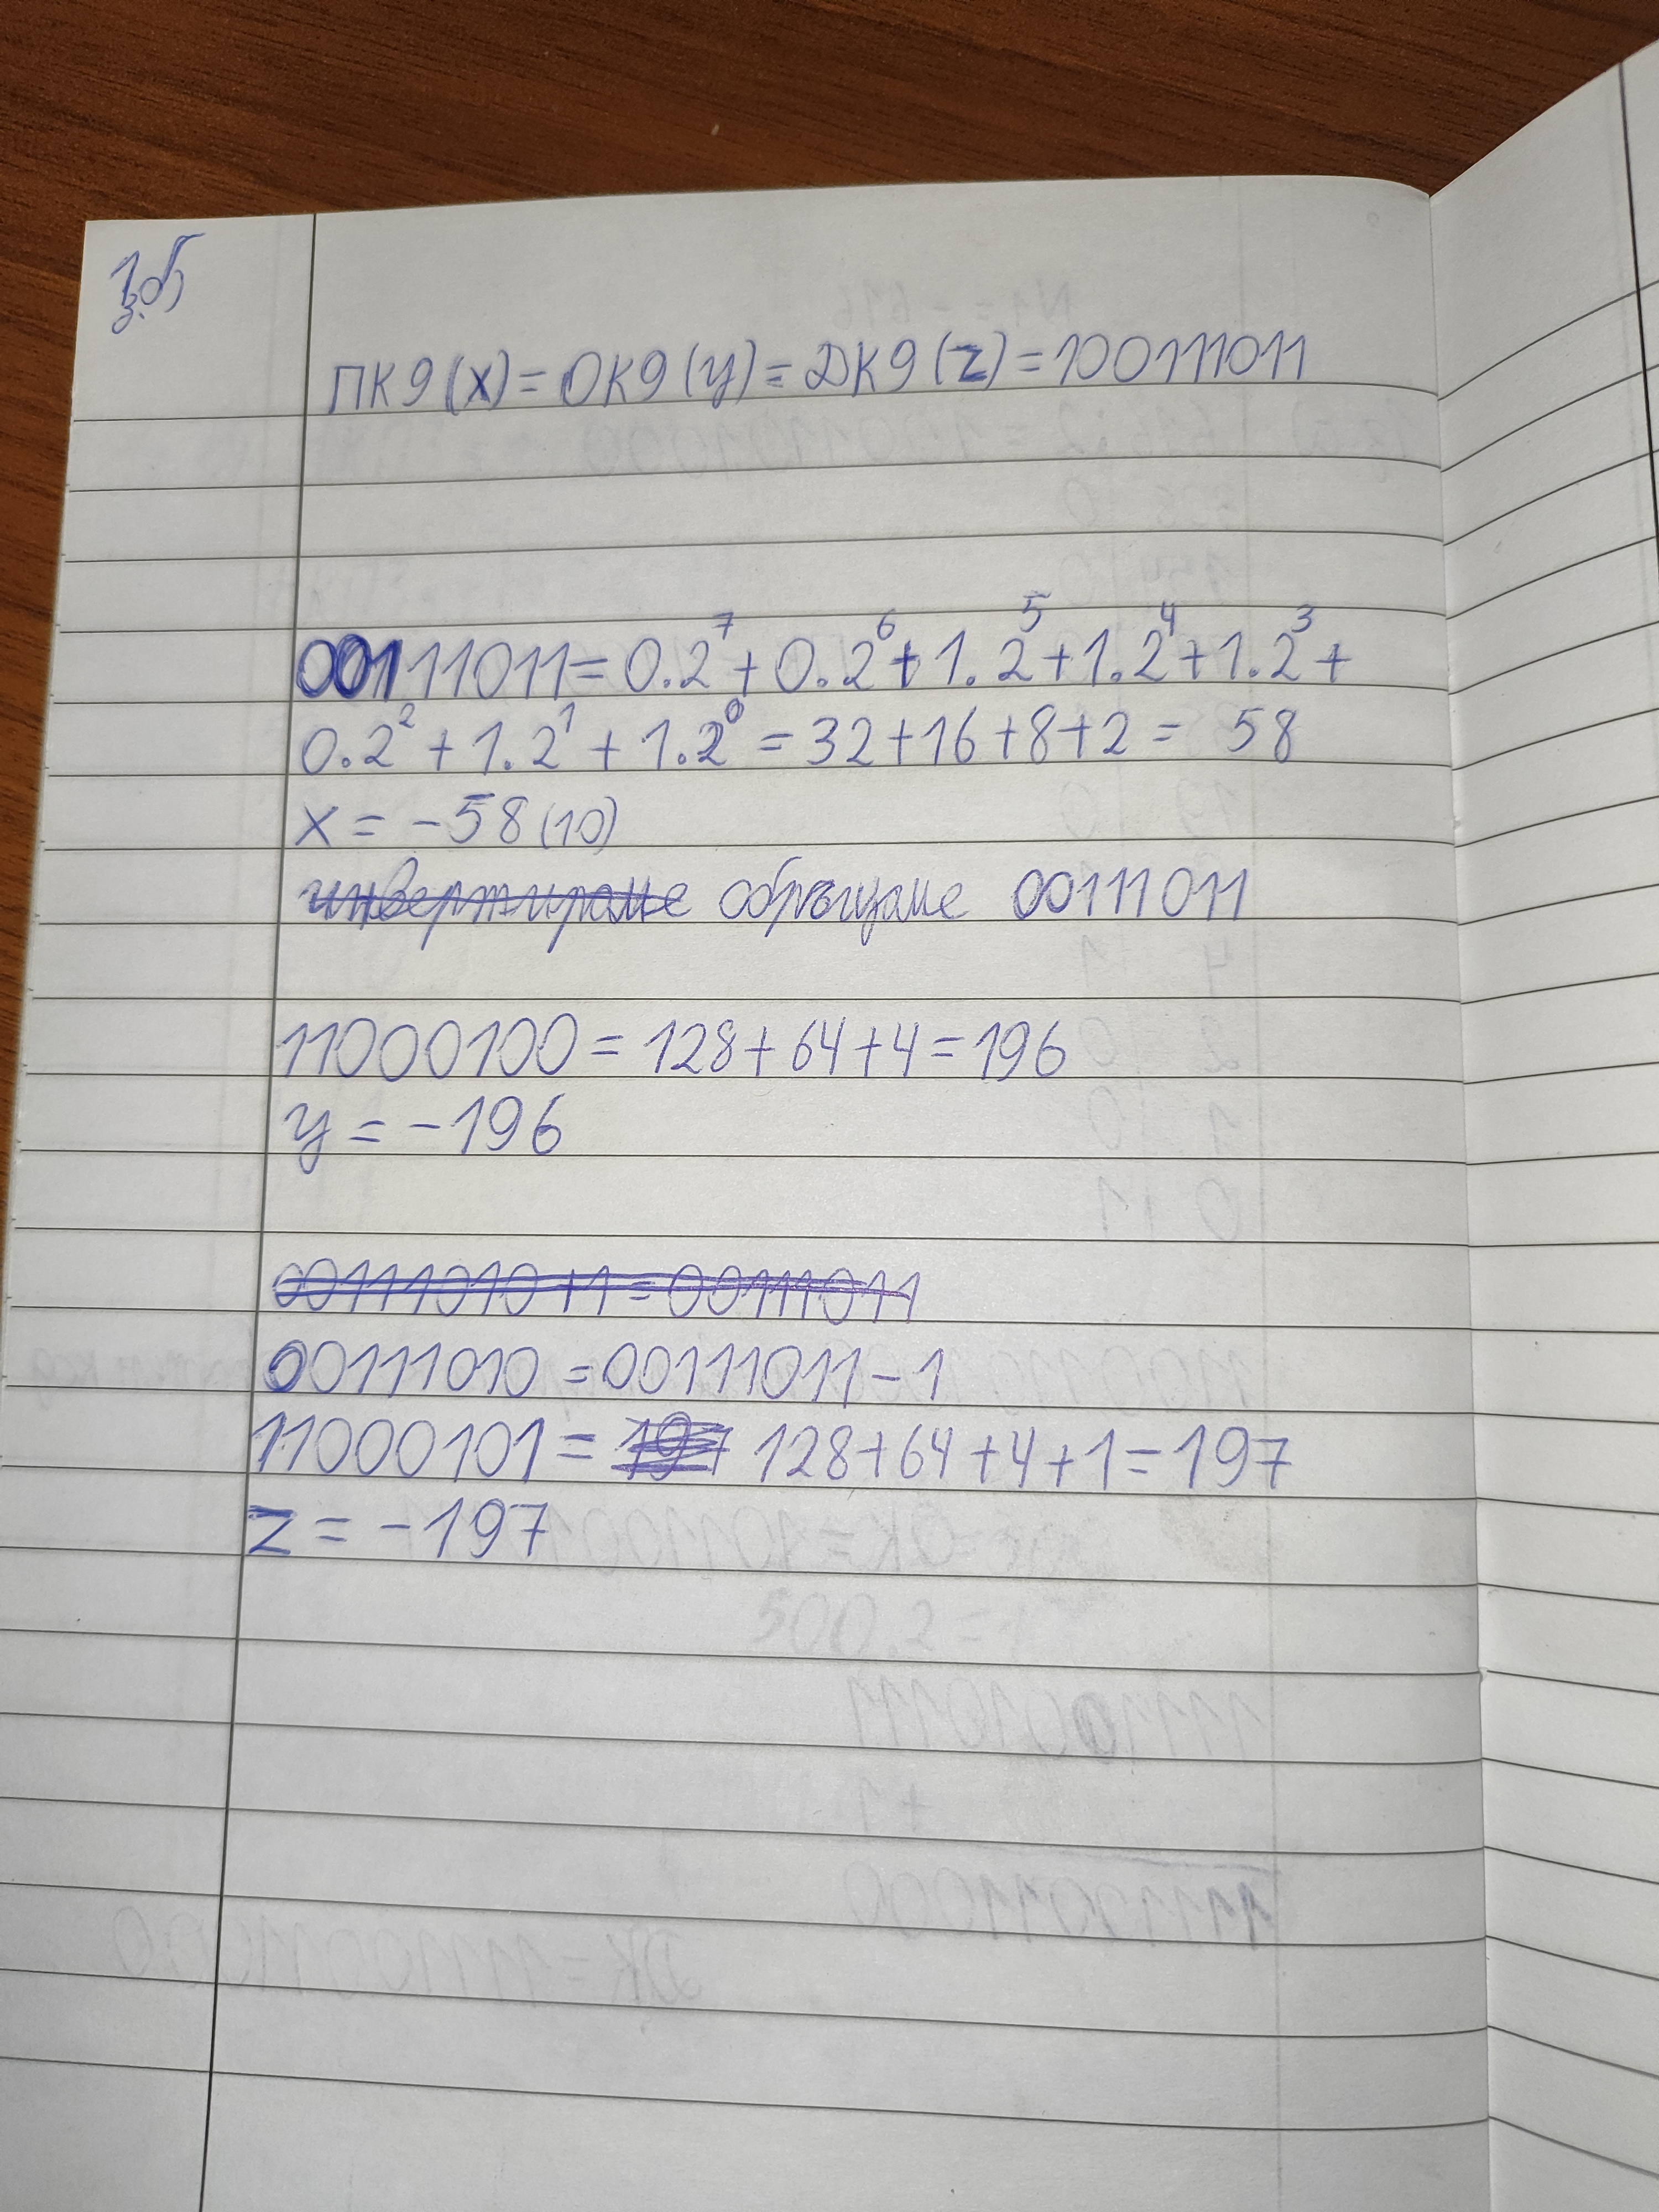 1.б)
з.
ПК9(x)=ОК9(y)=ДК9(z)=100111011
00111011=0.2⁷+0.2⁶+1.2⁵+1.2⁴+1.2³+
0.2²+1.2¹+1.2⁰=32+16+8+2= 58
x=-58(10)
инвертираме обръщаме 00111011
11000100=128+64+4=196
y=-196
00111010+1=00111011
00111010=00111011-1
11000101= 197 128+64+4+1=197
z=-197